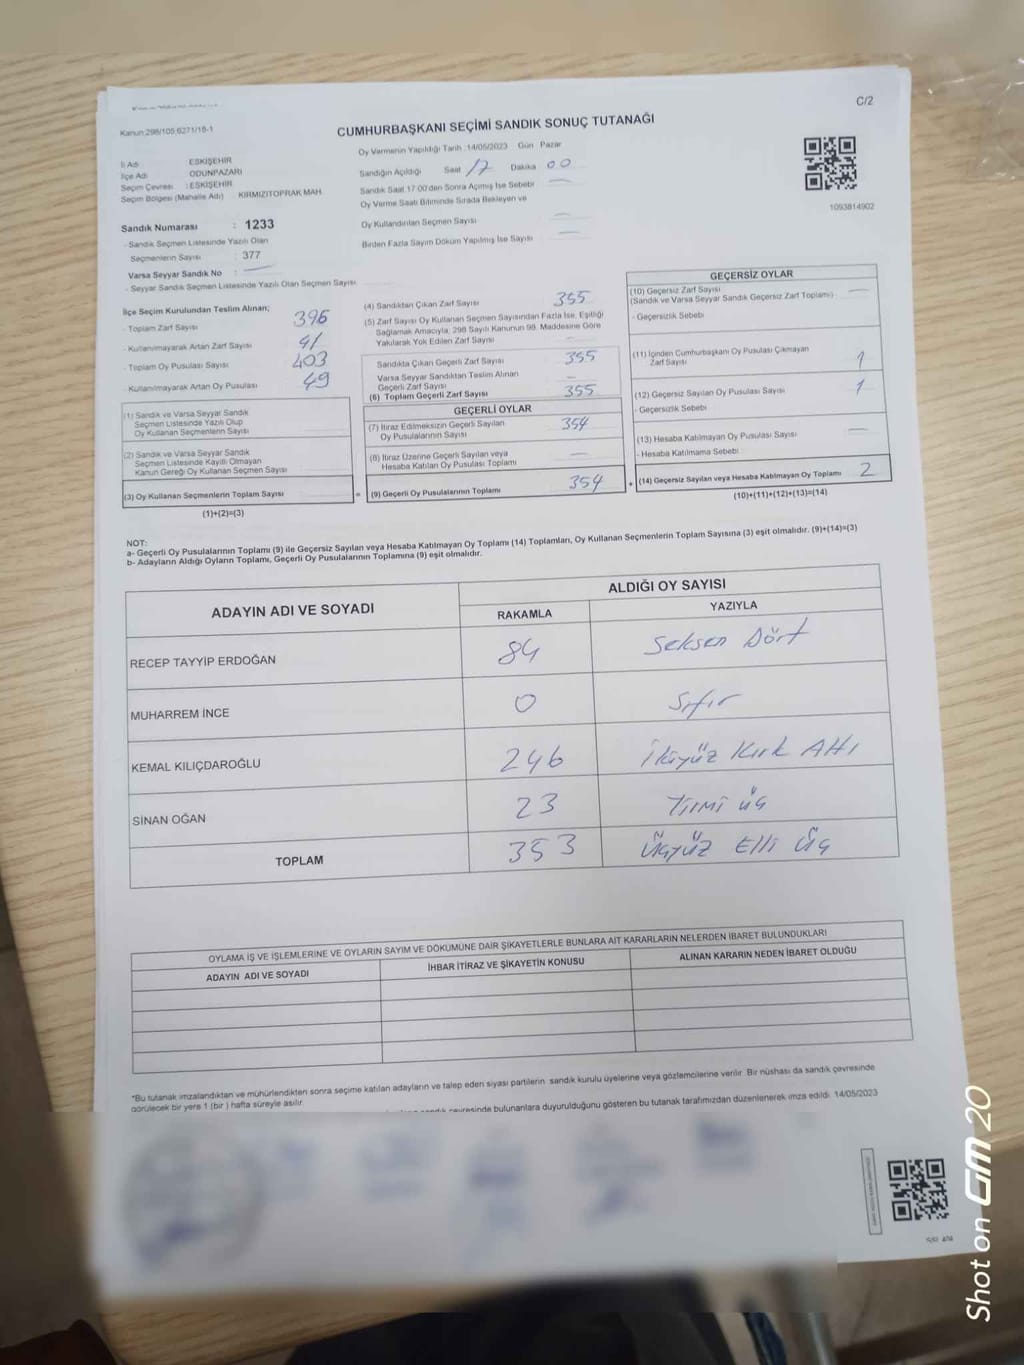 C/2
Kanun:298/105,6271/18-1
CUMHURBAŞKANI SEÇİMİ SANDIK SONUÇ TUTANAĞI
İl Adı : ESKİŞEHİR
İlçe Adı : ODUNPAZARI
Seçim Çevresi : ESKİŞEHİR
Seçim Bölgesi (Mahalle Adı) : KIRMIZITOPRAK MAH.
Sandık Numarası : 1233
- Sandık Seçmen Listesinde Yazılı Olan
Seçmenlerin Sayısı : 377
Varsa Seyyar Sandık No : —
- Seyyar Sandık Seçmen Listesinde Yazılı Olan Seçmen Sayısı
Oy Vermenin Yapıldığı Tarih :14/05/2023 Gün Pazar
Sandığın Açıldığı Saat 17 Dakika 00
Sandık Saat 17:00'den Sonra Açımış İse Sebebi —
Oy Verme Saati Bitiminde Sırada Bekleyen ve
Oy Kullandırılan Seçmen Sayısı —
Birden Fazla Sayım Döküm Yapılmış İse Sayısı —
1093814902
İlçe Seçim Kurulundan Teslim Alınan;
- Toplam Zarf Sayısı 396
- Kullanılmayarak Artan Zarf Sayısı 41
- Toplam Oy Pusulası Sayısı 403
- Kullanılmayarak Artan Oy Pusulası 49
(1) Sandık ve Varsa Seyyar Sandık
Seçmen Listesinde Yazılı Olup
Oy Kullanan Seçmenlerin Sayısı
(2) Sandık ve Varsa Seyyar Sandık
Seçmen Listesinde Kayıtlı Olmayan
Kanun Gereği Oy Kullanan Seçmen Sayısı
(3) Oy Kullanan Seçmenlerin Toplam Sayısı
(1)+(2)=(3)
(4) Sandıktan Çıkan Zarf Sayısı 355
(5) Zarf Sayısı Oy Kullanan Seçmen Sayısından Fazla İse, Eşitliği
Sağlamak Amacıyla; 298 Sayılı Kanunun 98. Maddesine Göre
Yakılarak Yok Edilen Zarf Sayısı —
Sandıkta Çıkan Geçerli Zarf Sayısı 355
Varsa Seyyar Sandıktan Teslim Alınan
Geçerli Zarf Sayısı —
(6) Toplam Geçerli Zarf Sayısı 355
GEÇERLİ OYLAR
(7) İtiraz Edilmeksizin Geçerli Sayılan
Oy Pusulalarının Sayısı 354
(8) İtiraz Üzerine Geçerli Sayılan veya
Hesaba Katılan Oy Pusulası Toplamı —
= (9) Geçerli Oy Pusulalarının Toplamı 354
GEÇERSİZ OYLAR
(10) Geçersiz Zarf Sayısı —
(Sandık ve Varsa Seyyar Sandık Geçersiz Zarf Toplamı)
- Geçersizlik Sebebi
(11) İçinden Cumhurbaşkanı Oy Pusulası Çıkmayan
Zarf Sayısı 1
(12) Geçersiz Sayılan Oy Pusulası Sayısı 1
- Geçersizlik Sebebi
(13) Hesaba Katılmayan Oy Pusulası Sayısı —
- Hesaba Katılmama Sebebi
+ (14) Geçersiz Sayılan veya Hesaba Katılmayan Oy Toplamı 2
(10)+(11)+(12)+(13)=(14)
NOT:
a- Geçerli Oy Pusulalarının Toplamı (9) ile Geçersiz Sayılan veya Hesaba Katılmayan Oy Toplamı (14) Toplamları, Oy Kullanan Seçmenlerin Toplam Sayısına (3) eşit olmalıdır. (9)+(14)=(3)
b- Adayların Aldığı Oyların Toplamı, Geçerli Oy Pusulalarının Toplamına (9) eşit olmalıdır.
ADAYIN ADI VE SOYADI ALDIĞI OY SAYISI
RAKAMLA YAZIYLA
RECEP TAYYİP ERDOĞAN 84 Seksen Dört
MUHARREM İNCE 0 Sıfır
KEMAL KILIÇDAROĞLU 246 İkiyüz Kırk Altı
SİNAN OĞAN 23 Yirmi üç
TOPLAM 353 Üçyüz Elli Üç
OYLAMA İŞ VE İŞLEMLERİNE VE OYLARIN SAYIM VE DÖKÜMÜNE DAİR ŞİKAYETLERLE BUNLARA AİT KARARLARIN NELERDEN İBARET BULUNDUKLARI
ADAYIN ADI VE SOYADI İHBAR İTİRAZ VE ŞİKAYETİN KONUSU ALINAN KARARIN NEDEN İBARET OLDUĞU
*Bu tutanak imzalandıktan ve mühürlendikten sonra seçime katılan adayların ve talep eden siyasi partilerin sandık kurulu üyelerine veya gözlemcilerine verilir. Bir nüshası da sandık çevresinde
görülecek bir yere 1 (bir ) hafta süreyle asılır.
çevresinde bulunanlara duyurulduğunu gösteren bu tutanak tarafımızdan düzenlenerek imza edildi. 14/05/2023
Shot on GM 20